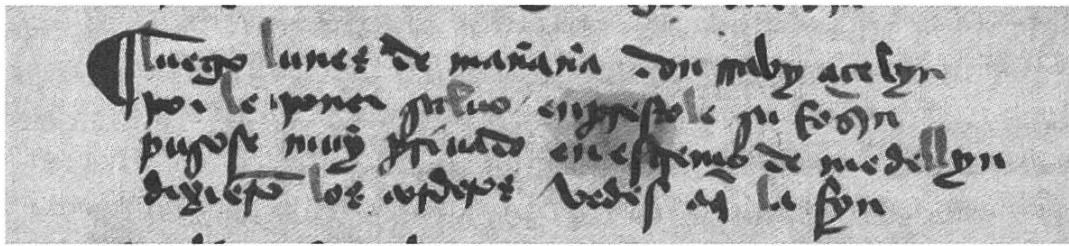 ¶ luego lunes de mañana don rraby açelyn
por le poner saluo enprestole su rroçyn
pusose muy priuado en estremo de medellyn
dixierõ los corderos vedes aq̃ la fyn